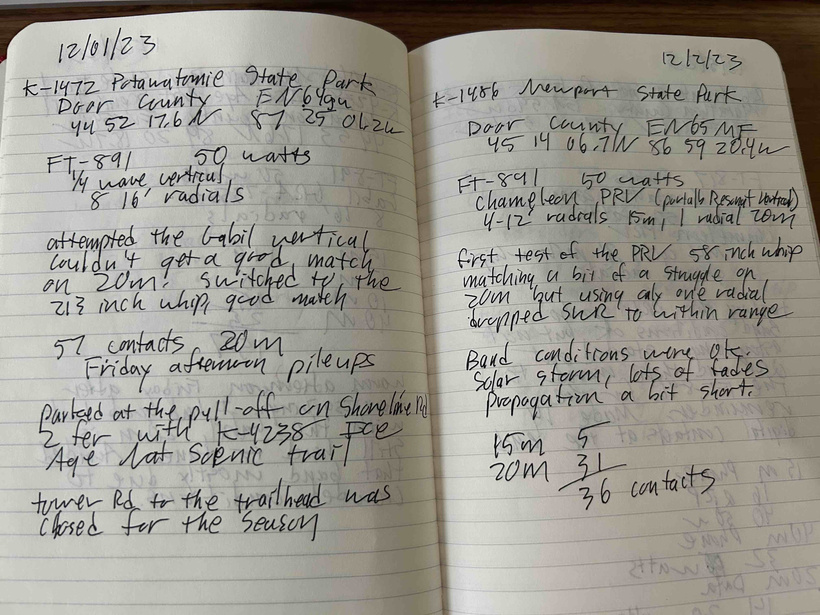 12/01/23
K-1472 Potawatomie State Park
Door County EN64gu
44 52 17.6 N 87 25 04.2w
FT-891 50 watts
1/4 wave vertical
8 16' radials
attempted the Gabil vertical
Couldn't get a good match
on 20m. Switched to the
213 inch whip, good match
57 contacts 20m
Friday afternoon pileups
Parked at the pull-off on Shoreline Rd
2 fer with K-4238 Ice
Age Nat Scenic trail
tower Rd to the trailhead was
closed for the season
12/2/23
K-1486 Newport State Park
Door County EN65MF
45 14 06.7N 86 59 20.4w
FT-891 50 watts
Chameleon PRV (partially Resonant Vertical)
4-12' radials 15m, 1 radial 20m
first test of the PRV 58 inch whip
matching a bit of a struggle on
20m but using only one radial
dropped SWR to within range
Band conditions were Ok.
Solar storm, lots of fades
propagation a bit short.
15m 5
20M 31
36 contacts